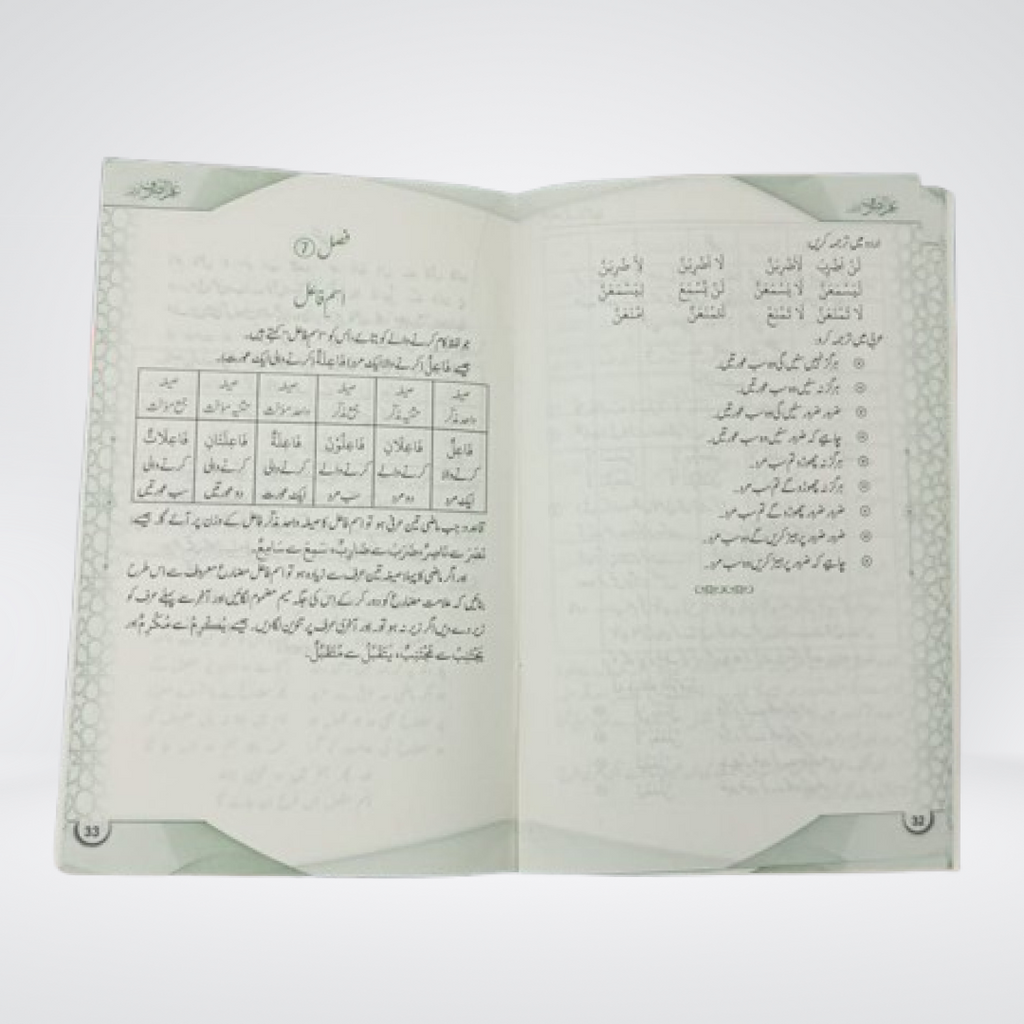 علم الصرف
اردو میں ترجمہ کریں:
لَنْ اَضْرِبَ لَاَضْرِبَنَّ لَا اَضْرِبَنَّ لِاَضْرِبَنَّ
لَيَسْمَعَنَّ لَا يَسْمَعَنَّ لَنْ يَّسْمَعَ لِيَسْمَعَنَّ
لَا تَمْنَعَنَّ لَا تَمْنَعْ لَتَمْنَعَنَّ اِمْنَعَنَّ
عربی میں ترجمہ کرو:
ہرگز نہیں سنیں گی وہ سب عورتیں۔
ہرگز نہ سنیں وہ سب عورتیں۔
ضرور ضرور سنیں گی وہ سب عورتیں۔
چاہیے کہ ضرور سنیں وہ سب عورتیں۔
ہرگز نہ چھوڑو تم سب مرد۔
ہرگز نہ چھوڑو گے تم سب مرد۔
ضرور ضرور چھوڑو گے تم سب مرد۔
ضرور ضرور پرہیز کریں گے وہ سب مرد۔
چاہیے کہ ضرور پرہیز کریں وہ سب مرد۔
32
علم الصرف
فصل 7
اسم فاعل
جو لفظ کام کرنے والے کو بتائے، اُس کو "اسم فاعل" کہتے ہیں۔
جیسے: فَاعِلٌ (کرنے والا ایک مرد) فَاعِلَةٌ (کرنے والی ایک عورت)۔
صیغہ صیغہ صیغہ صیغہ صیغہ صیغہ
واحد مذکّر تثنیہ مذکّر جمع مذکّر واحد مؤنث تثنیہ مؤنث جمع مؤنث
فَاعِلٌ فَاعِلَانِ فَاعِلُوْنَ فَاعِلَةٌ فَاعِلَتَانِ فَاعِلَاتٌ
کرنے والا کرنے والے کرنے والے کرنے والی کرنے والی کرنے والی
ایک مرد دو مرد سب مرد ایک عورت دو عورتیں سب عورتیں
قاعدہ: جب ماضی تین حرفی ہو تو اسم فاعل کا صیغہ واحد مذکّر فاعل کے وزن پر آئے گا۔ جیسے:
نَصَرَ سے نَاصِرٌ، ضَرَبَ سے ضَارِبٌ، سَمِعَ سے سَامِعٌ۔
اور اگر ماضی کا پہلا صیغہ تین حرف سے زیادہ ہو تو اسم فاعل مضارع معروف سے اس طرح
بنائیں کہ علامت مضارع کو دور کر کے اس کی جگہ میم مضموم لگائیں اور آخر سے پہلے حرف کو
زیر دے دیں اگر زیر نہ ہو تو۔ اور آخری حرف پر تنوین لگا دیں۔ جیسے: يُكْرِمُ سے مُكْرِمٌ اور
يَجْتَنِبُ سے مُجْتَنِبٌ، يَتَقَبَّلُ سے مُتَقَبِّلٌ۔
33